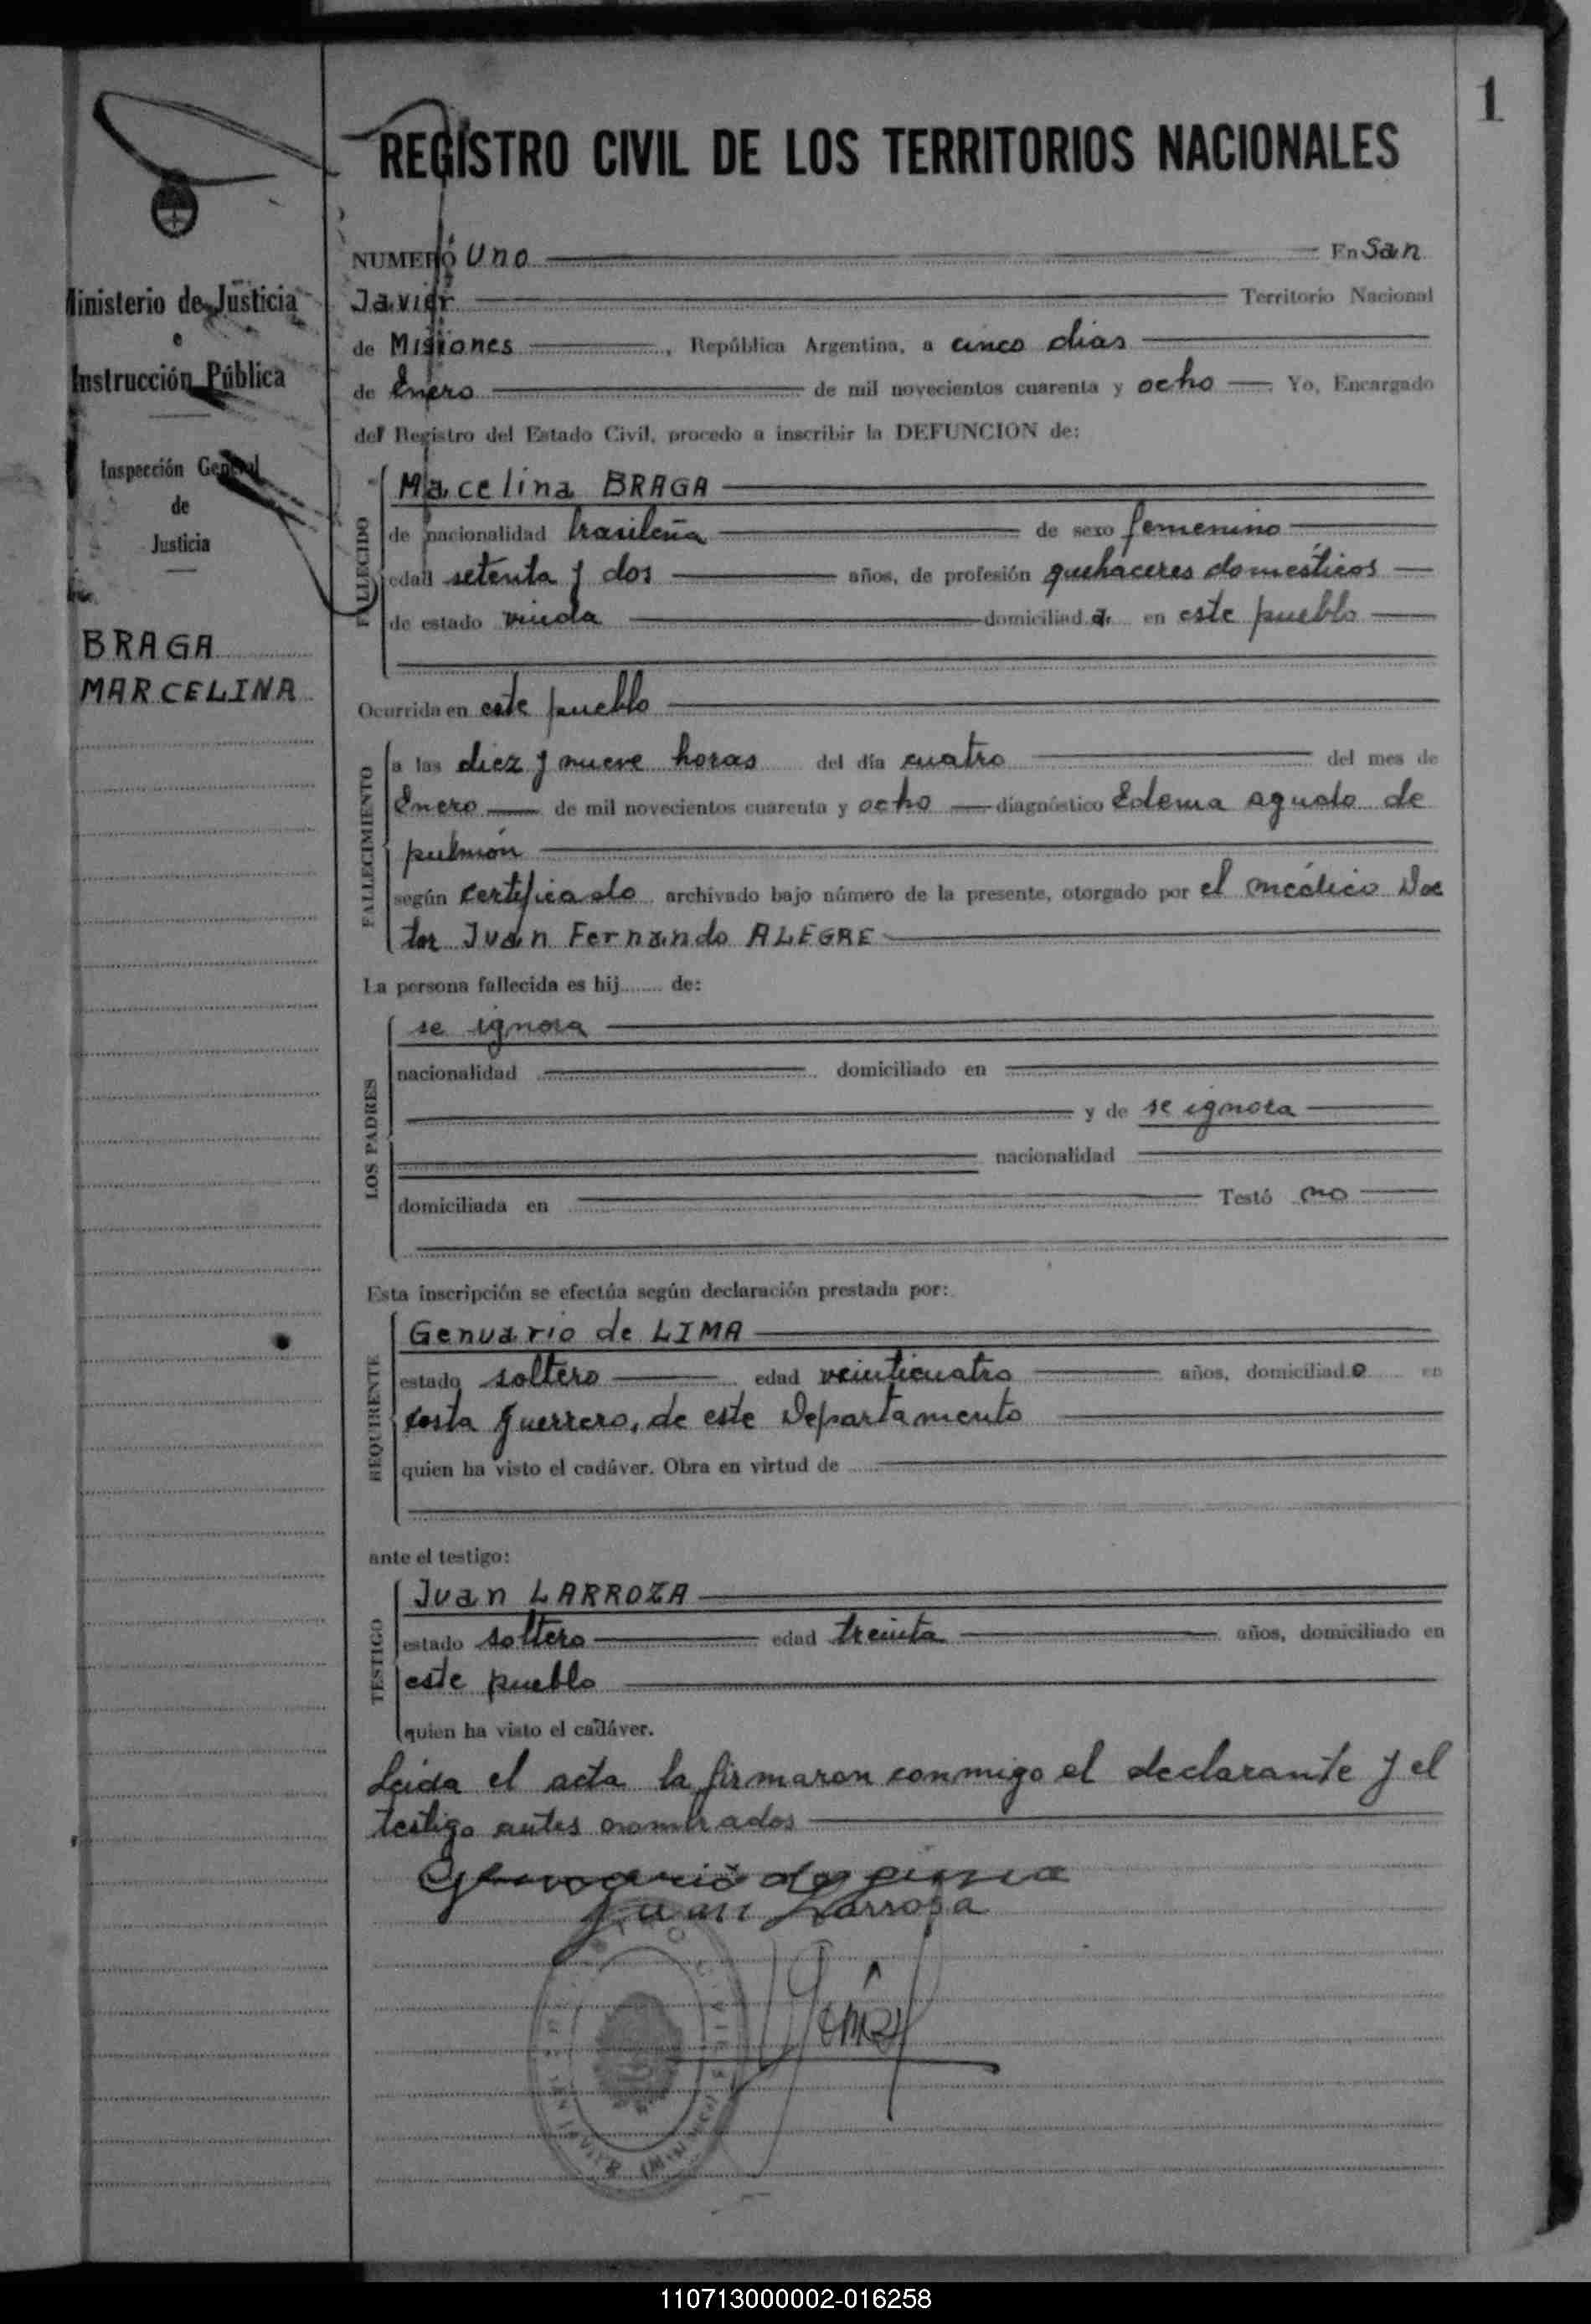 1
REGISTRO CIVIL DE LOS TERRITORIOS NACIONALES
Ministerio de Justicia
e
Instrucción Pública
Inspección General
de
Justicia
BRAGA
MARCELINA
NUMERO Uno En San
Javier Territorio Nacional
de Misiones, República Argentina, a cinco dias
de Enero de mil novecientos cuarenta y ocho Yo, Encargado
del Registro del Estado Civil, procedo a inscribir la DEFUNCION de:
FALLECIDO
Marcelina BRAGA
de nacionalidad brasileña de sexo femenino
edad setenta y dos años, de profesión quehaceres domésticos
de estado viuda domiciliad a en este pueblo
Ocurrida en este pueblo
FALLECIMIENTO
a las diez y nueve horas del día cuatro del mes de
Enero de mil novecientos cuarenta y ocho diagnóstico Edema agudo de
pulmón
según certificado archivado bajo número de la presente, otorgado por el médico Doc
tor Juan Fernando ALEGRE
La persona fallecida es hij........ de:
LOS PADRES
se ignora
nacionalidad domiciliado en
y de se ignora
nacionalidad
domiciliada en Testó no
Esta inscripción se efectúa según declaración prestada por:
REQUIRENTE
Genuario de LIMA
estado soltero edad veinticuatro años, domiciliado en
costa Guerrero, de este Departamento
quien ha visto el cadáver. Obra en virtud de
ante el testigo:
TESTIGO
Juan LARROZA
estado soltero edad treinta años, domiciliado en
este pueblo
quien ha visto el cadáver.
Leida el acta la firmaron conmigo el declarante y el
testigo antes nombrados
Juan Larrosa
110713000002-016258